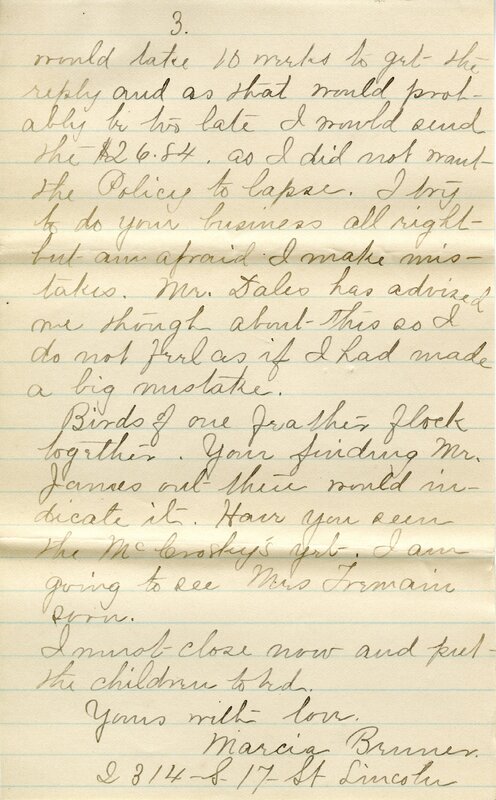 3.
would take 10 weeks to get the
reply and as that would prob-
ably be too late I would send
the $26.84. as I did not want
the Policy to lapse. I try
to do your business all right
but am afraid I make mis-
takes. Mr. Dales has advised
me though about this so I
do not feel as if I had made
a big mistake.
Birds of one feather flock
together. Your finding Mr.
James out there would in-
dicate it. Have you seen
the McCrosky's yet. I am
going to see Mrs Tremain
soon.
I must close now and put
the children to bed.
Yours with love.
Marcia Bruner.
2314-S-17-St Lincoln